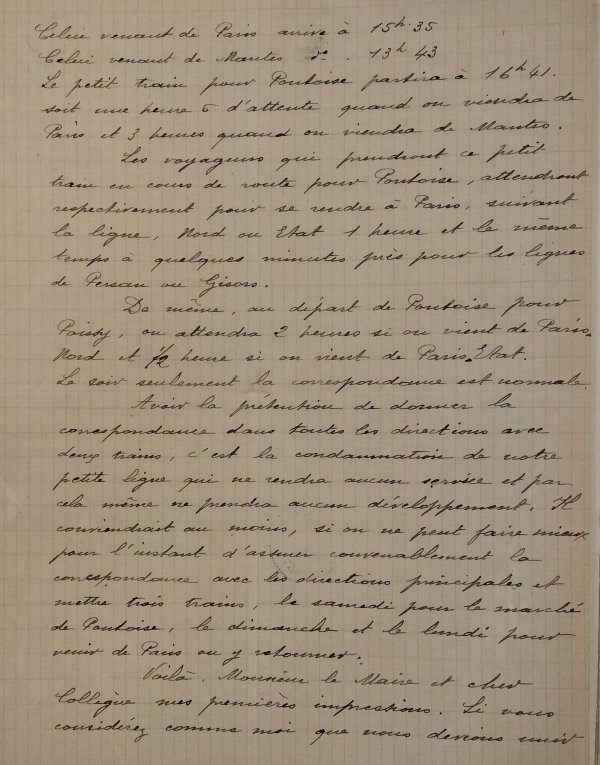 Celui venant de Paris arrive à 15h.35
Celui venant de Mantes do . 13h 43
Le petit train pour Pontoise partira à 16h 41.
soit une heure 5 d'attente quand on viendra de
Paris et 3 heures quand on viendra de Mantes.
Les voyageurs qui prendront ce petit
train en cours de route pour Pontoise, attendront
respectivement pour se rendre à Paris, suivant
la ligne, Nord ou Etat 1 heure et le même
temps à quelques minutes près pour les lignes
de Persan ou Gisors.
De même, au départ de Pontoise pour
Poissy, on attendra 2 heures si on vient de Paris-
Nord et 1/2 heure si on vient de Paris-Etat.
Le soir seulement la correspondance est normale
Avoir la prétention de donner la
correspondance dans toutes les directions avec
deux trains, c'est la condamnation de notre
petite ligne qui ne rendra aucun service et par
cela même ne prendra aucun développement. Il
conviendrait au moins, si on ne peut faire mieux
pour l'instant d'assurer convenablement la
correspondance avec les directions principales et
mettre trois trains, le samedi pour le marché
de Pontoise, le dimanche et le lundi pour
venir de Paris ou y retourner.
Voilà, Monsieur le Maire et cher
Collègue mes premières impressions. Si vous
considérez comme moi que nous devions unir